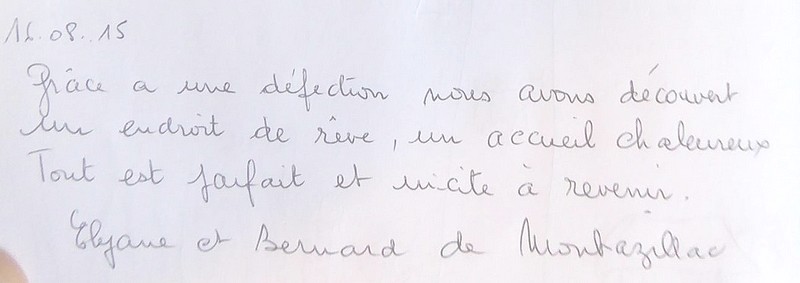 16.08.15
Grâce a une défection nous avons découvert
un endroit de rêve, un accueil chaleureux
Tout est parfait et incite à revenir.
Elyane et Bernard de Montazillac